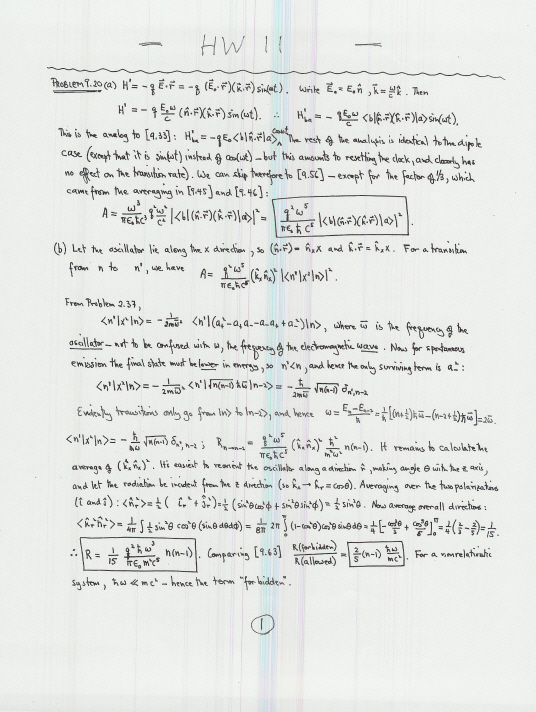 — HW 11 —
Problem 9.20 (a) H' = -q E⃗·r⃗ = -q (E⃗₀·r⃗)(k⃗·r⃗) sin(ωt). Write E⃗₀ = E₀n̂, k⃗ = (ω/c)k̂. Then
H' = -q (E₀ω/c) (n̂·r⃗)(k̂·r⃗) sin(ωt). ∴ H'ba = -(qE₀ω/c) <b|(n̂·r⃗)(k̂·r⃗)|a> sin(ωt).
This is the analog to [9.33]: H'ba = -qE₀<b|n̂·r⃗|a> cos ωt. The rest of the analysis is identical to the dipole
case (except that it is sin(ωt) instead of cos(ωt) — but this amounts to resetting the clock, and clearly has
no effect on the transition rate). We can skip therefore to [9.56] — except for the factor of 1/3, which
came from the averaging in [9.45] and [9.46]:
A = (ω³/πε₀ħc³) (q²ω²/c²) |<b|(n̂·r⃗)(k̂·r⃗)|a>|² = (q²ω⁵/πε₀ħc⁵) |<b|(n̂·r⃗)(k̂·r⃗)|a>|².
(b) Let the oscillator lie along the x direction, so (n̂·r⃗) = n̂ₓx and k̂·r⃗ = k̂ₓx. For a transition
from n to n', we have A = (q²ω⁵/πε₀ħc⁵) (k̂ₓn̂ₓ)² |<n'|x²|n>|².
From Problem 2.37,
<n'|x²|n> = -(1/2mω̄²) <n'|(a₊² - a₊a₋ - a₋a₊ + a₋²)|n>, where ω̄ is the frequency of the
oscillator — not to be confused with ω, the frequency of the electromagnetic wave. Now for spontaneous
emission the final state must be lower in energy, so n'<n, and hence the only surviving term is a₋²:
<n'|x²|n> = -(1/2mω̄²) <n'|√(n(n-1)) ħω̄|n-2> = -(ħ/2mω̄) √(n(n-1)) δn',n-2
Evidently transitions only go from |n> to |n-2>, and hence ω = (En - En-2)/ħ = (1/ħ)[(n+½)ħω̄ - (n-2+½)ħω̄] = 2ω̄.
<n'|x²|n> = -(ħ/mω) √(n(n-1)) δn',n-2 ; Rn→n-2 = (q²ω⁵/πε₀ħc⁵) (k̂ₓn̂ₓ)² (ħ²/m²ω²) n(n-1). It remains to calculate the
average of (k̂ₓn̂ₓ)². It's easiest to reorient the oscillator along a direction r̂, making angle θ with the z axis,
and let the radiation be incident from the z direction (so k̂ₓ → k̂r = cosθ). Averaging over the two polarizations
(î and ĵ): <n̂r²> = ½ (îr² + ĵr²) = ½ (sin²θcos²φ + sin²θsin²φ) = ½ sin²θ. Now average overall directions:
<k̂r²n̂r²> = (1/4π) ∫ ½ sin²θ cos²θ (sinθ dθdφ) = (1/8π) 2π ∫₀^π (1-cos²θ)cos²θ sinθ dθ = ¼ [-cos³θ/3 + cos⁵θ/5]₀^π = ¼ (2/3 - 2/5) = 1/15.
∴ R = (1/15) (q²ħω³/πε₀m²c⁵) n(n-1). Comparing [9.63] R(forbidden)/R(allowed) = (2/5)(n-1) ħω/mc². For a nonrelativistic
system, ħω ≪ mc² — hence the term "forbidden".
1